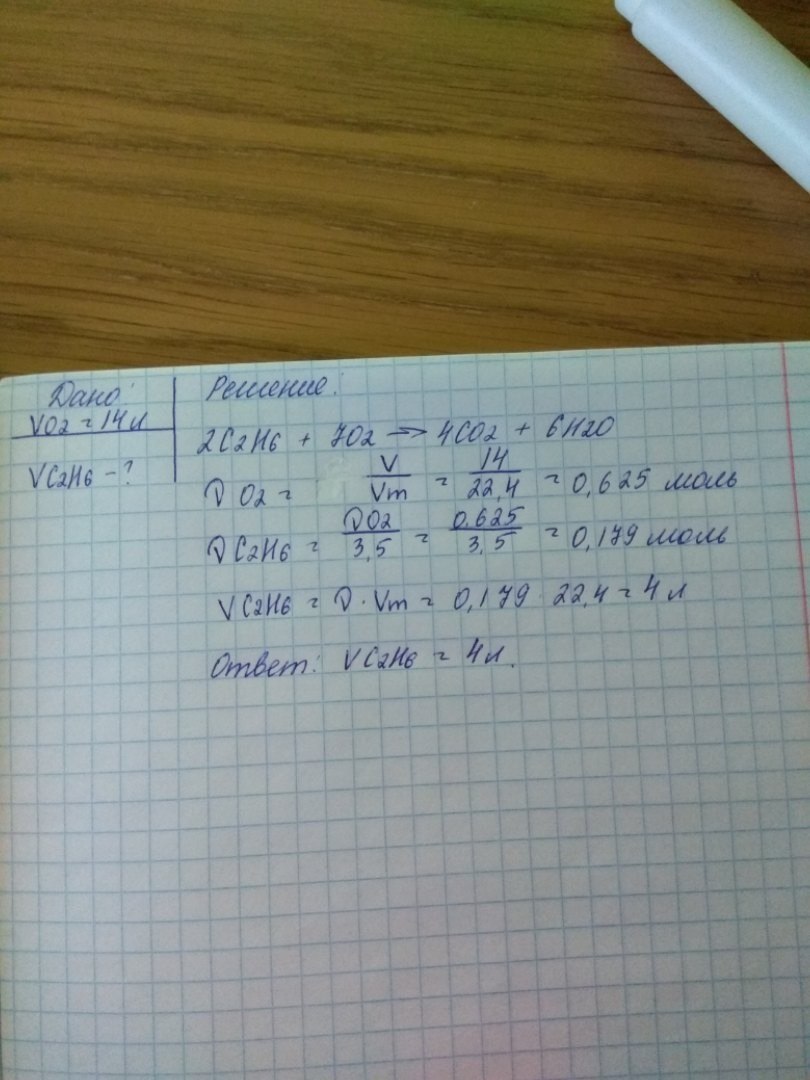 Дано:
VO2 = 14 л
VC2H6 - ?
Решение:
2C2H6 + 7O2 → 4CO2 + 6H2O
νO2 = V/Vm = 14/22,4 = 0,625 моль
νC2H6 = νO2/3,5 = 0,625/3,5 = 0,179 моль
VC2H6 = ν · Vm = 0,179 · 22,4 = 4 л
Ответ: VC2H6 = 4 л.